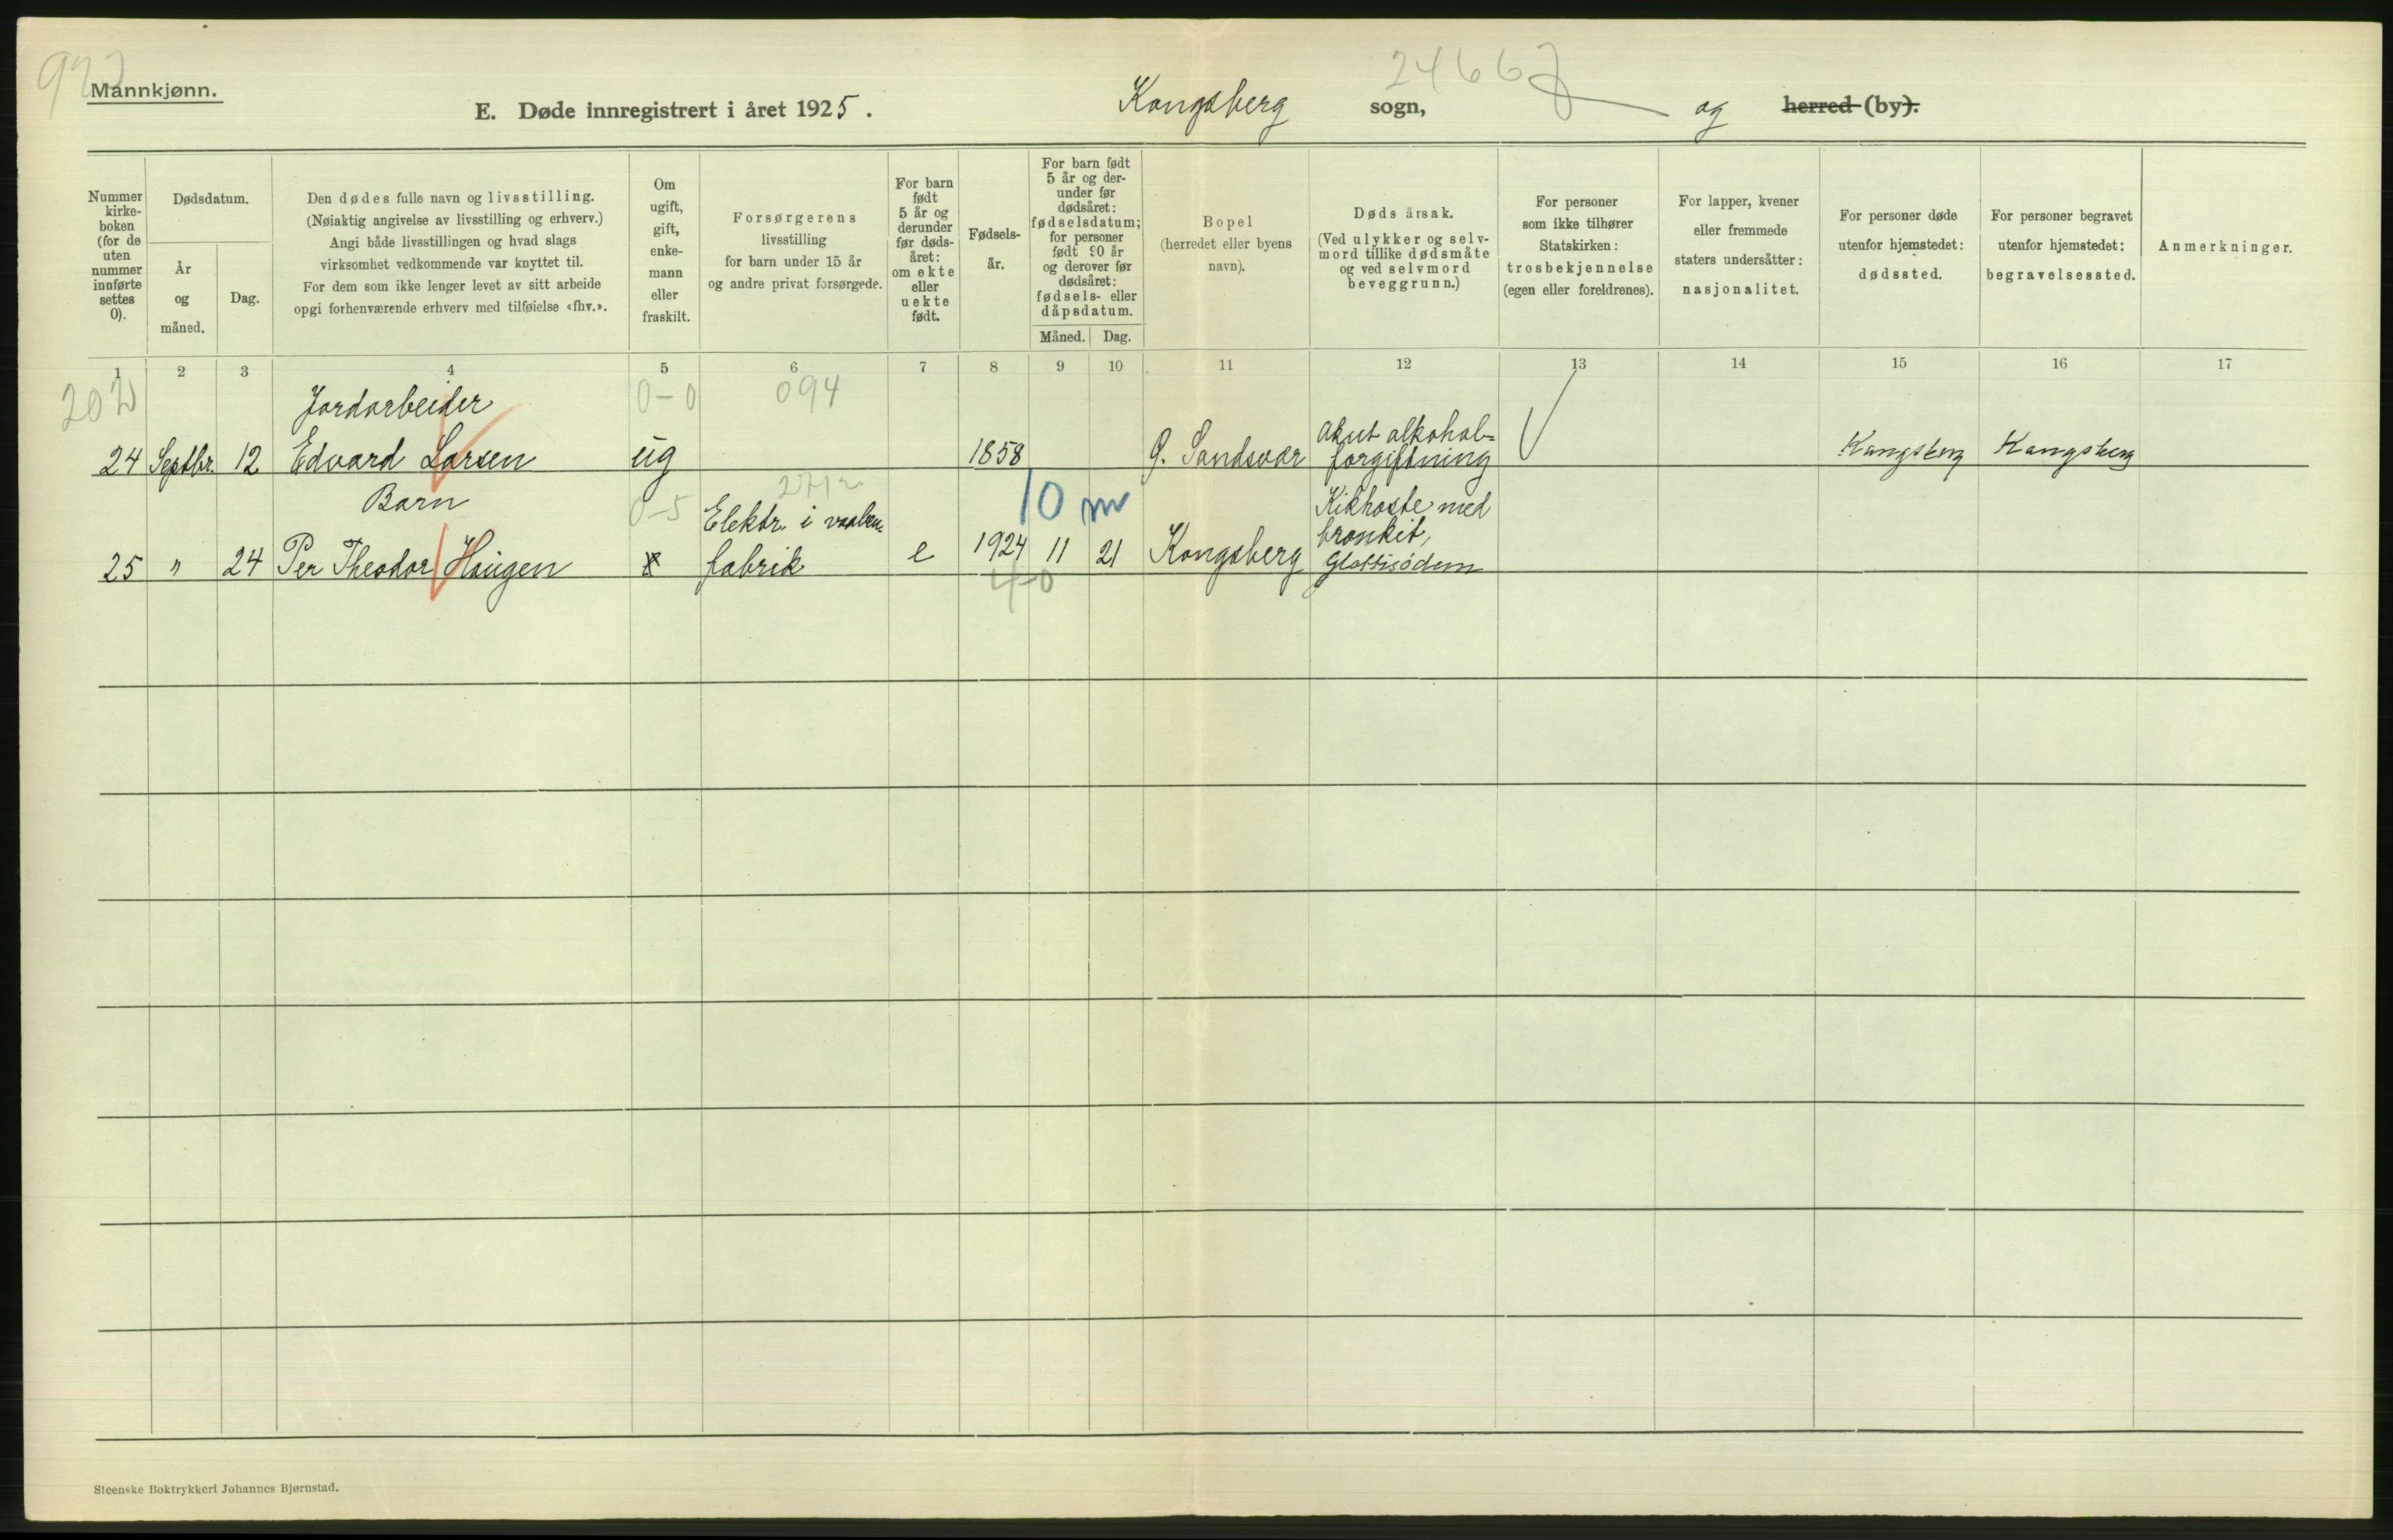 Mannkjønn.
24667
E. Døde innregistrert i året 1925. Kongsberg sogn, og herred (by).
Nummer kirke-boken (for de uten nummer innførte settes 0).
Dødsdatum.
År og måned.
Dag.
Den dødes fulle navn og livsstilling.
(Nøiaktig angivelse av livsstilling og erhverv.)
Angi både livsstillingen og hvad slags
virksomhet vedkommende var knyttet til.
For dem som ikke lenger levet av sitt arbeide
opgi forhenværende erhverv med tilføielse «fhv.».
Om ugift, gift, enke-mann eller fraskilt.
Forsørgerens
livsstilling
for barn under 15 år
og andre privat forsørgede.
For barn født 5 år og derunder før døds-året: om ekte eller uekte født.
Fødsels-år.
For barn født 5 år og der-under før dødsåret: fødselsdatum; for personer født 90 år og derover før dødsåret: fødsels- eller dåpsdatum.
Måned. Dag.
Bopel
(herredet eller byens
navn).
Dødsårsak.
(Ved ulykker og selv-
mord tillike dødsmåte
og ved selvmord
beveggrunn.)
For personer
som ikke tilhører
Statskirken:
trosbekjennelse
(egen eller foreldrenes).
For lapper, kvener
eller fremmede
staters undersåtter:
nasjonalitet.
For personer døde
utenfor hjemstedet:
dødssted.
For personer begravet
utenfor hjemstedet:
begravelsessted.
Anmerkninger.
1 2 3 4 5 6 7 8 9 10 11 12 13 14 15 16 17
202 Jordarbeider 0-0 094
24 Septbr. 12 Edvard Larsen ug 1858 G. Sandsvær Akut alkohol-
forgiftning Kongsberg Kongsberg
Barn 0-5 10 m
25 " 24 Per Theodor Haugen Elektr. i vaaben-
fabrik e 1924 11 21 Kongsberg Kikhoste med
bronkit,
Glottisödem
4-0
Steenske Boktrykkeri Johannes Bjørnstad.